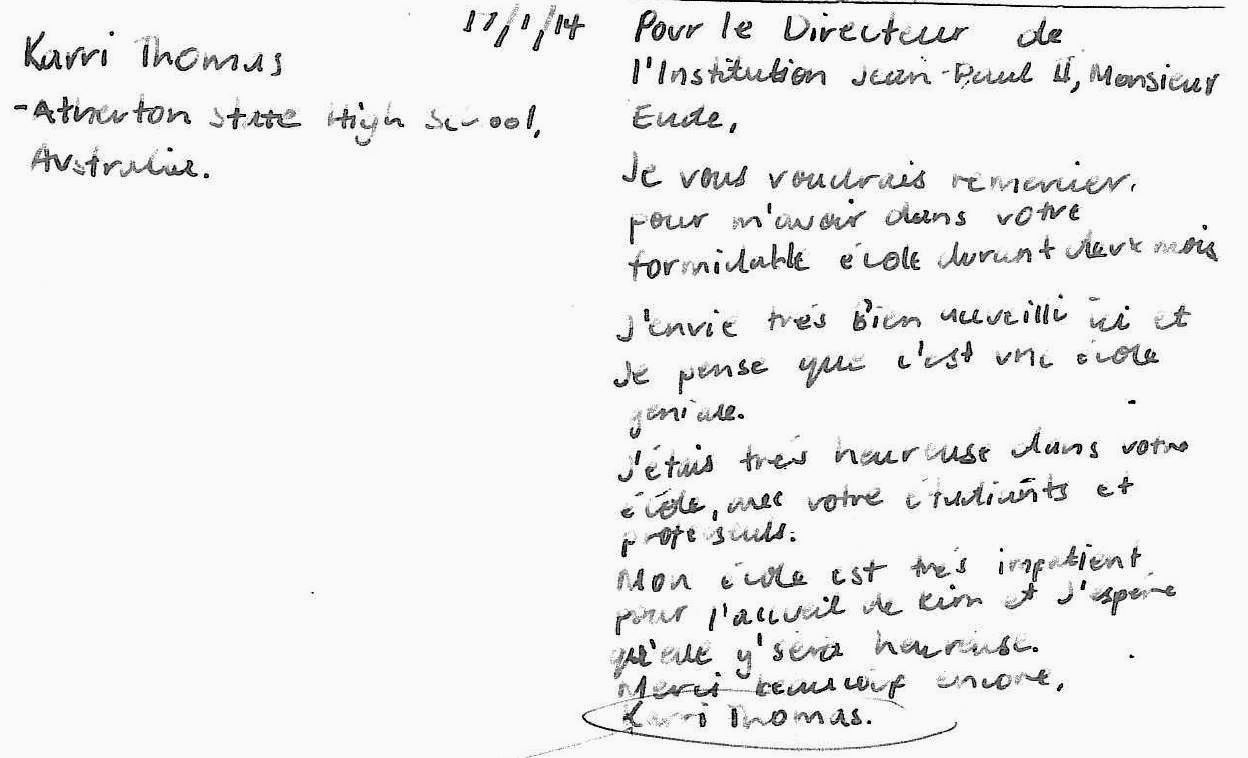 17/1/14
Karri Thomas
-Atherton State High School,
Australia.
Pour le Directeur de
l'Institution Jean-Paul II, Monsieur
Eude,
Je vous voudrais remercier.
pour m'avoir dans votre
formidable école durant deux mois
J'envie trés Bien accueilli ici et
Je pense que c'est une école
geniale.
J'étais trés heureuse dans votre
école, avec votre étudiants et
professeurs.
Mon école est trés impatient
pour l'accueil de Kim et J'espére
qu'elle y'sera heureuse.
Merci beaucoup encore,
Karri Thomas.